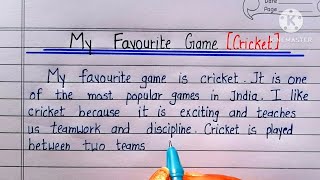 Date
Page
KINEMASTER
My Favourite Game [Cricket]
My favourite game is cricket. It is one
of the most popular games in India. I like
cricket because it is exciting and teaches
us teamwork and discipline. Cricket is played
between two teams